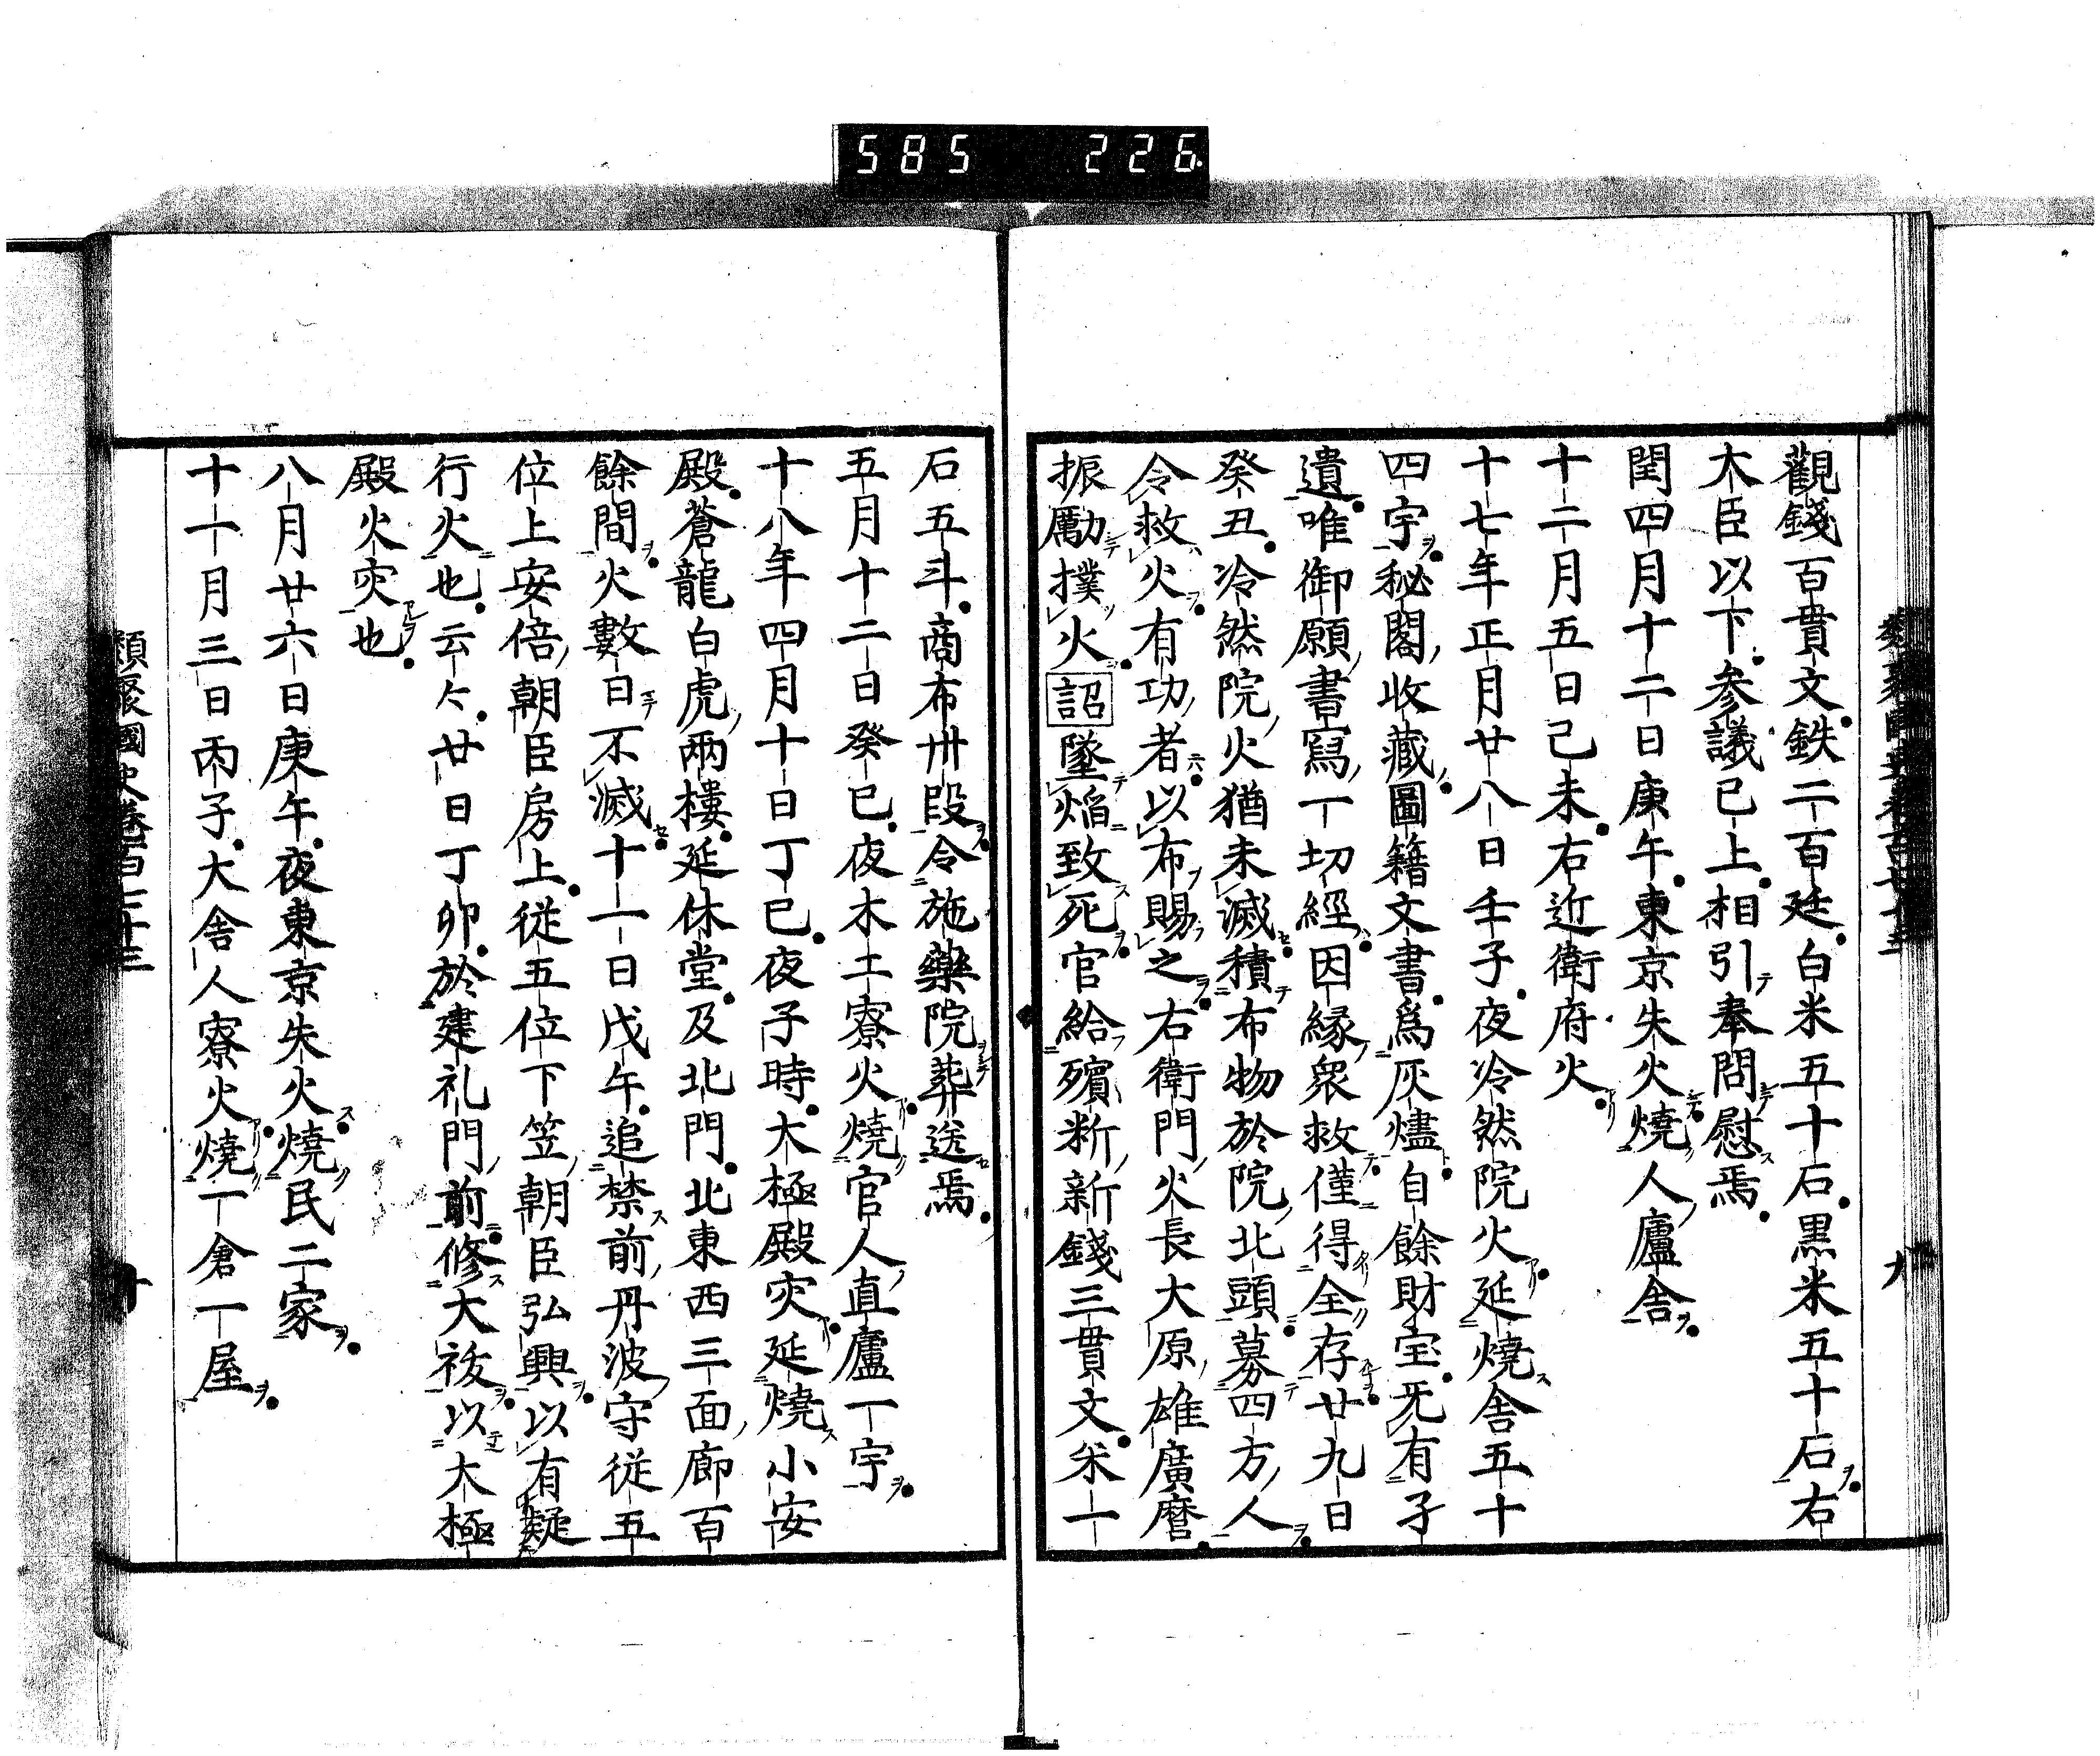 585 226
觀錢百貫文鉄二百廷白米五十石黒米五十石右
大臣以下參議已上相引奉問慰焉
閏四月十二日庚午東京失火燒人廬舎
十二月五日己未右近衛府火
十七年正月廿八日壬子夜冷然院火延燒舎五十
四宇秘閣收藏圖籍文書爲灰燼自餘財宝旡有孑
遺唯御願書寫一切經因縁衆救僅得全存廿九日
癸丑冷然院火猶未滅積布物於院北頭募四方人
令救火有功者以布賜之右衛門火長大原雄廣麿
振勵撲火詔墜焔致死官給殯料新錢三貫文米一
石五斗商布卅段令施藥院葬送焉
五月十二日癸巳夜木工寮火燒官人直廬一宇
十八年四月十日丁巳夜子時大極殿灾延燒小安
殿蒼龍白虎兩樓延休堂及北門北東西三面廊百
餘間火數日不滅十一日戊午追禁前丹波守從五
位上安倍朝臣房上從五位下笠朝臣弘興以有疑
行火也云々廿日丁卯於建礼門前修大祓以大極
殿火灾也
八月廿六日庚午夜東京失火燒民二家
十一月三日丙子大舎人寮火燒一倉一屋
類聚國史卷百七十三
十